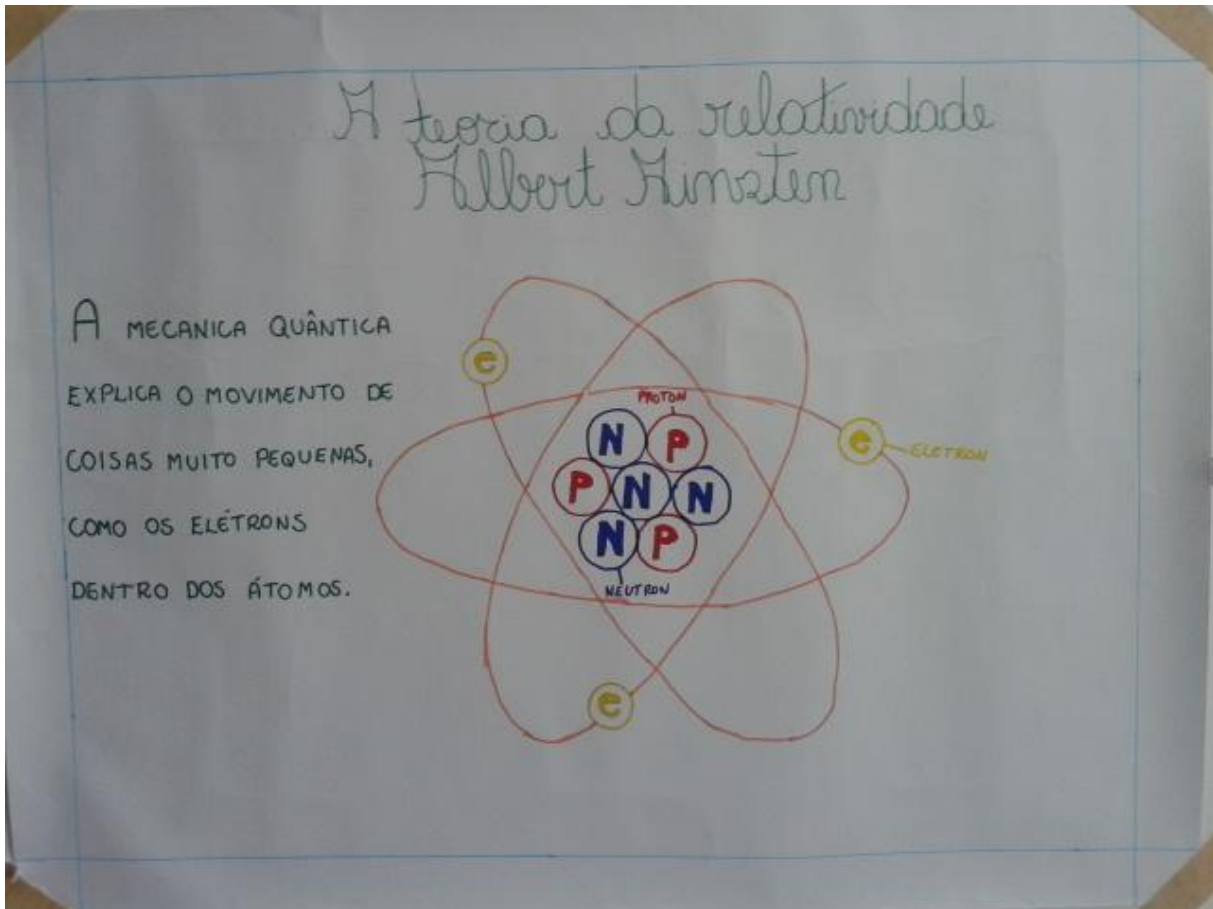 A teoria da relatividade
Albert Ainsten
A MECANICA QUÂNTICA
EXPLICA O MOVIMENTO DE
COISAS MUITO PEQUENAS,
COMO OS ELÉTRONS
DENTRO DOS ÁTOMOS.
e
PROTON
N P
e
ELETRON
P N N
N P
NEUTRON
e